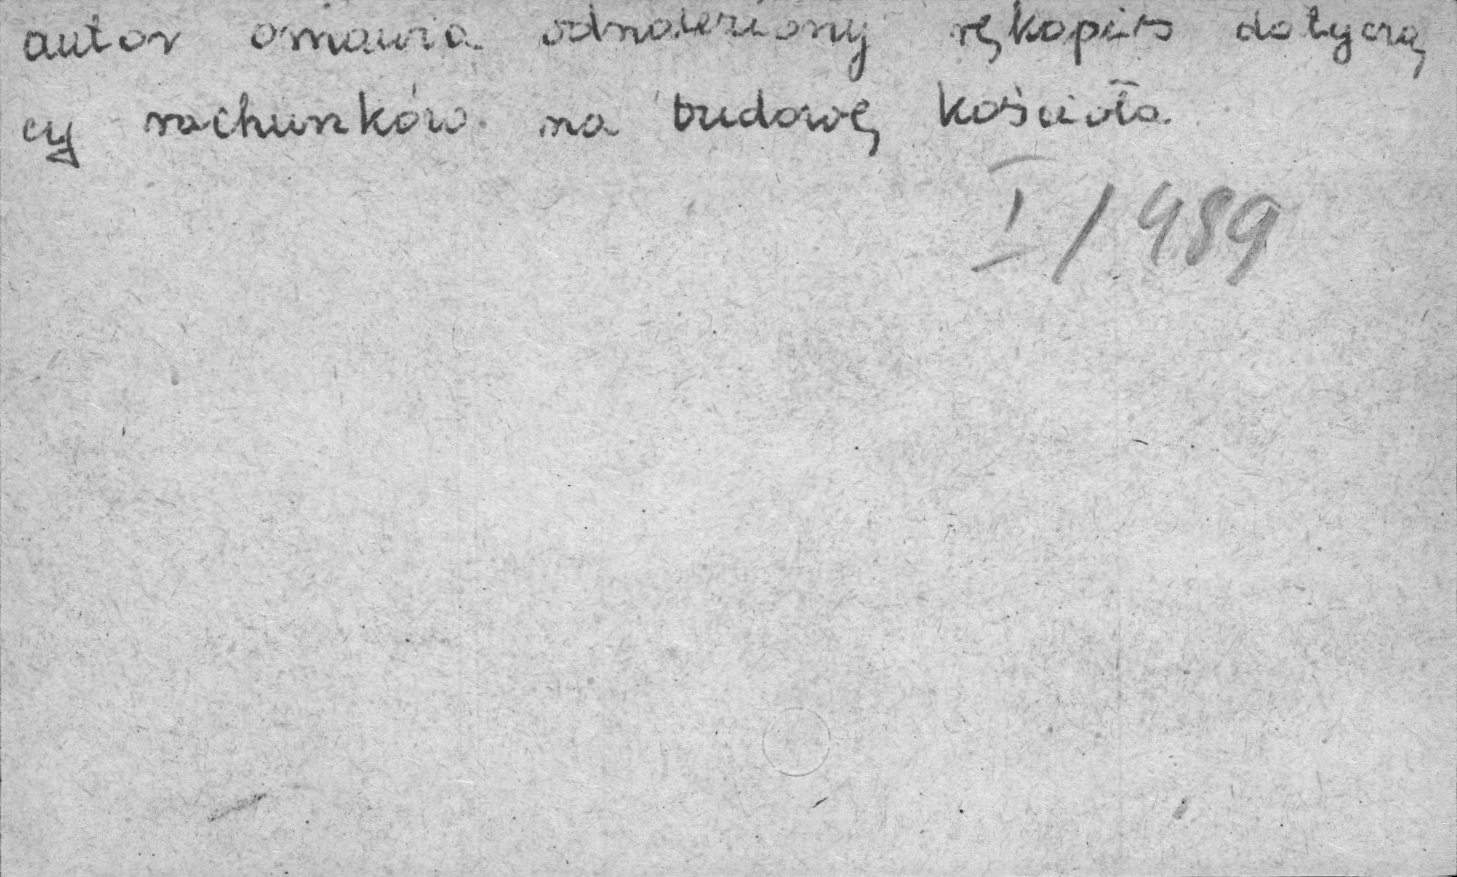 autor omawia odnaleziony rękopis dotyczą
cy rachunków na budowę kościoła
I/489